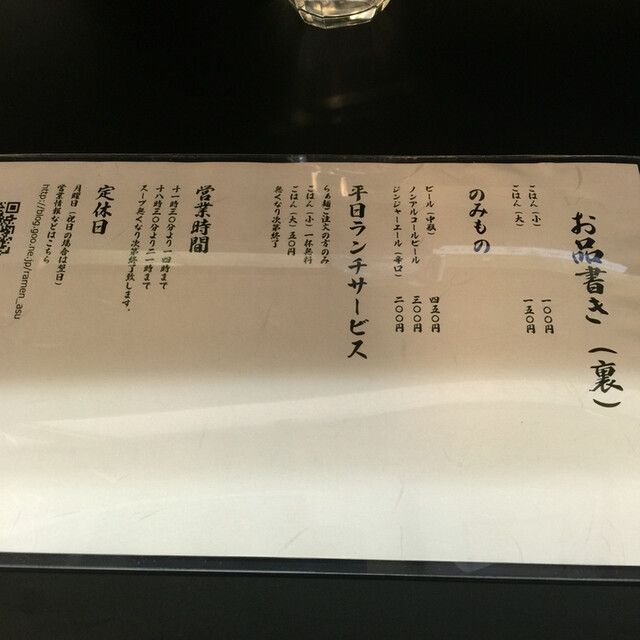 お品書き（裏）
ごはん（小）　一〇〇円
ごはん（大）　一五〇円
のみもの
ビール（中瓶）　四五〇円
ノンアルコールビール　三〇〇円
ジンジャーエール（辛口）　二〇〇円
平日ランチサービス
らぁ麺ご注文の方のみ
ごはん（小）一杯無料
ごはん（大）五〇円
無くなり次第終了
営業時間
十一時三〇分より一四時まで
十八時三〇分より二一時まで
スープ無くなり次第終了致します。
定休日
月曜日（祝日の場合は翌日）
営業情報などはこちら
http://blog.goo.ne.jp/ramen_asu